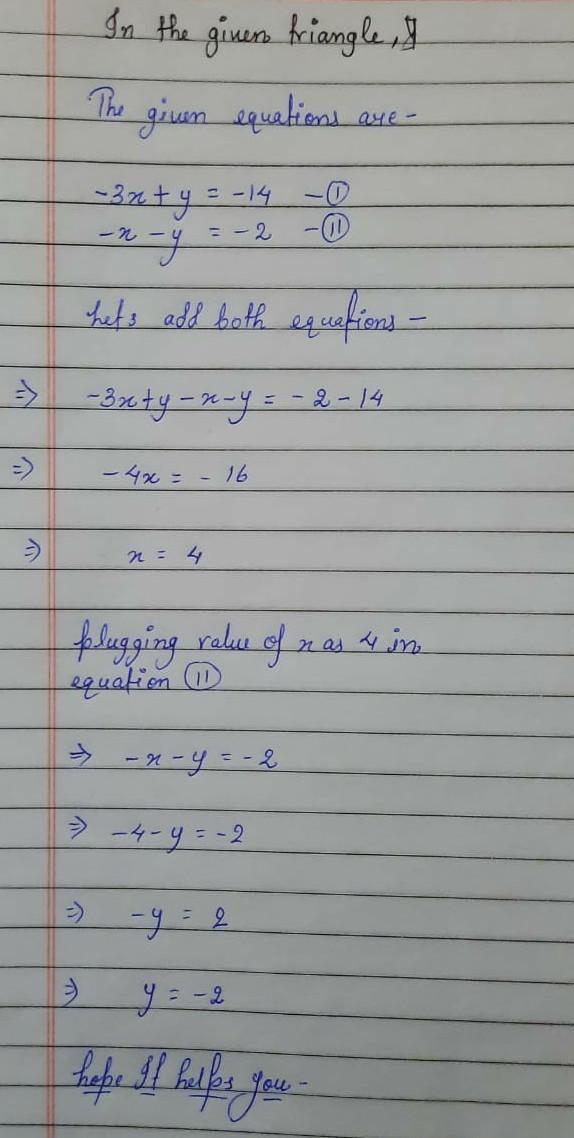 In the given triangle,
The given equations are -
-3x + y = -14 - (I)
-x - y = -2 - (II)
Lets add both equations -
⇒ -3x + y - x - y = - 2 - 14
⇒ -4x = - 16
⇒ x = 4
plugging value of x as 4 in
equation (II)
⇒ -x - y = -2
⇒ -4 - y = -2
⇒ -y = 2
⇒ y = -2
hope It helps you -